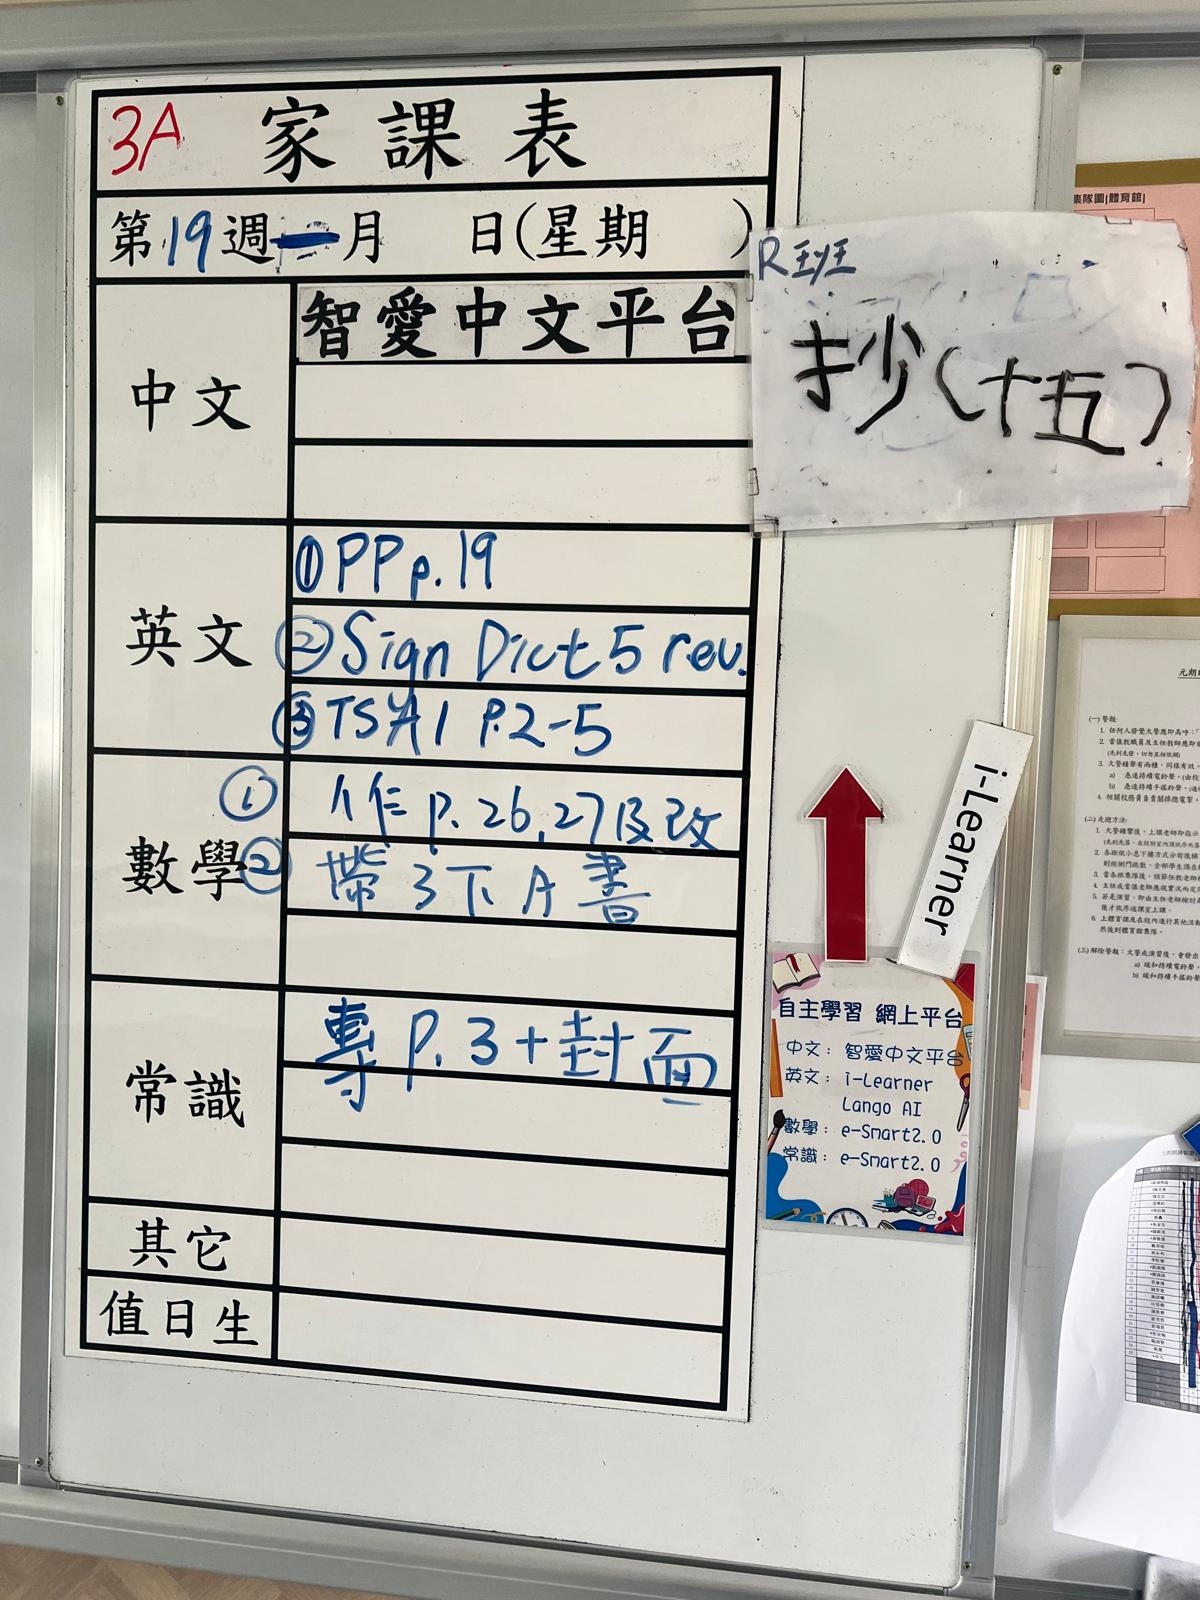 3A 家課表
第19週 月 日(星期 )
中文
智愛中文平台
R班
抄(十五)
英文
①PP p.19
②Sign Dict 5 rev.
③TSA1 P.2-5
數學
① 作 p.26,27及改
② 帶3下A書
常識
專 P.3+封面
其它
值日生
i-Learner
自主學習 網上平台
中文：智愛中文平台
英文：i-Learner
Lango AI
數學：e-Smart2.0
常識：e-Smart2.0
集隊圖[體育館]
(一) 警報:
(二) 走避方法: